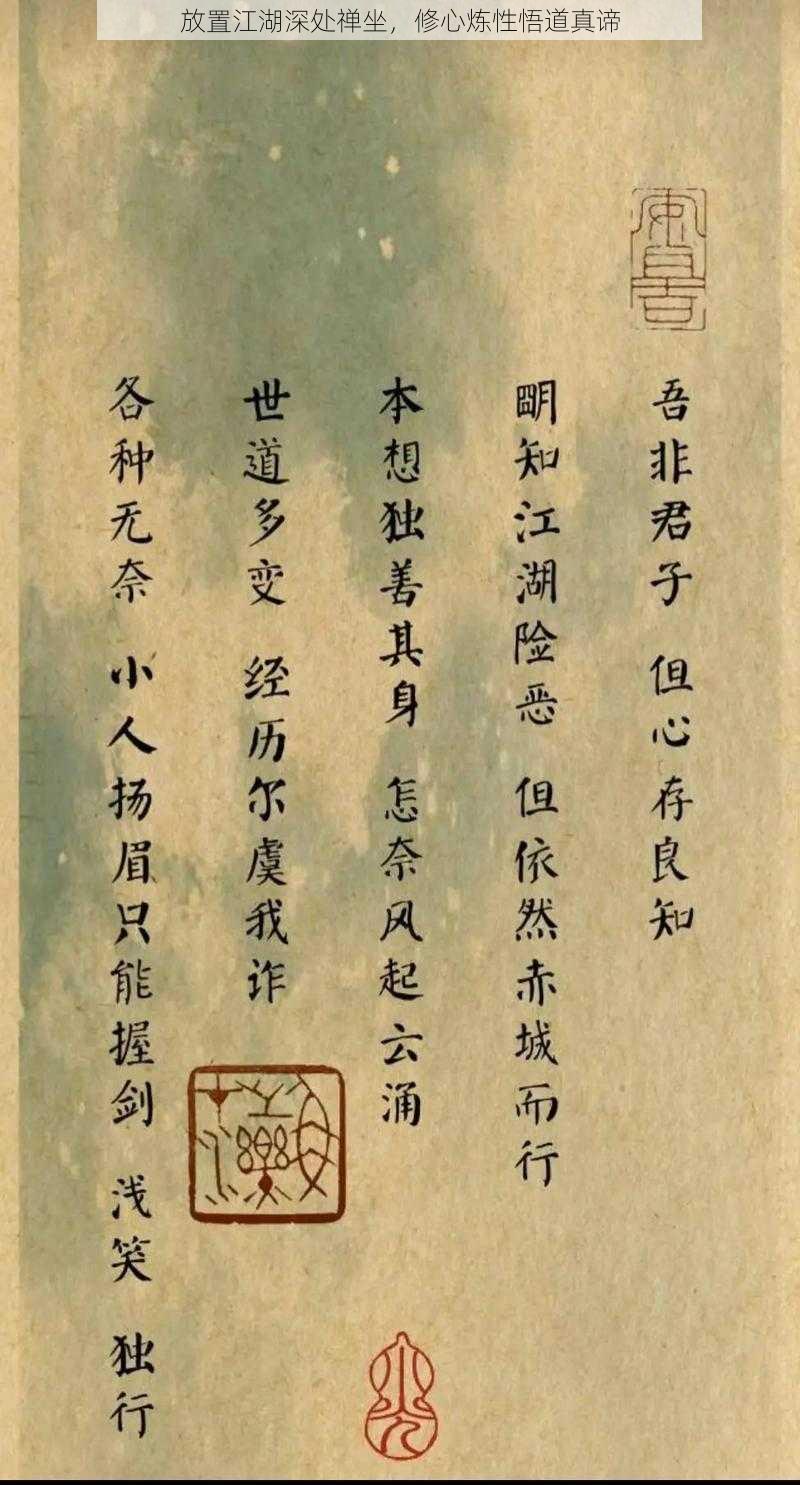 放置江湖深处禅坐，修心炼性悟道真谛
吾非君子 但心存良知
明知江湖险恶 但依然赤城而行
本想独善其身 怎奈风起云涌
世道多变 经历尔虞我诈
各种无奈 小人扬眉只能握剑 浅笑 独行